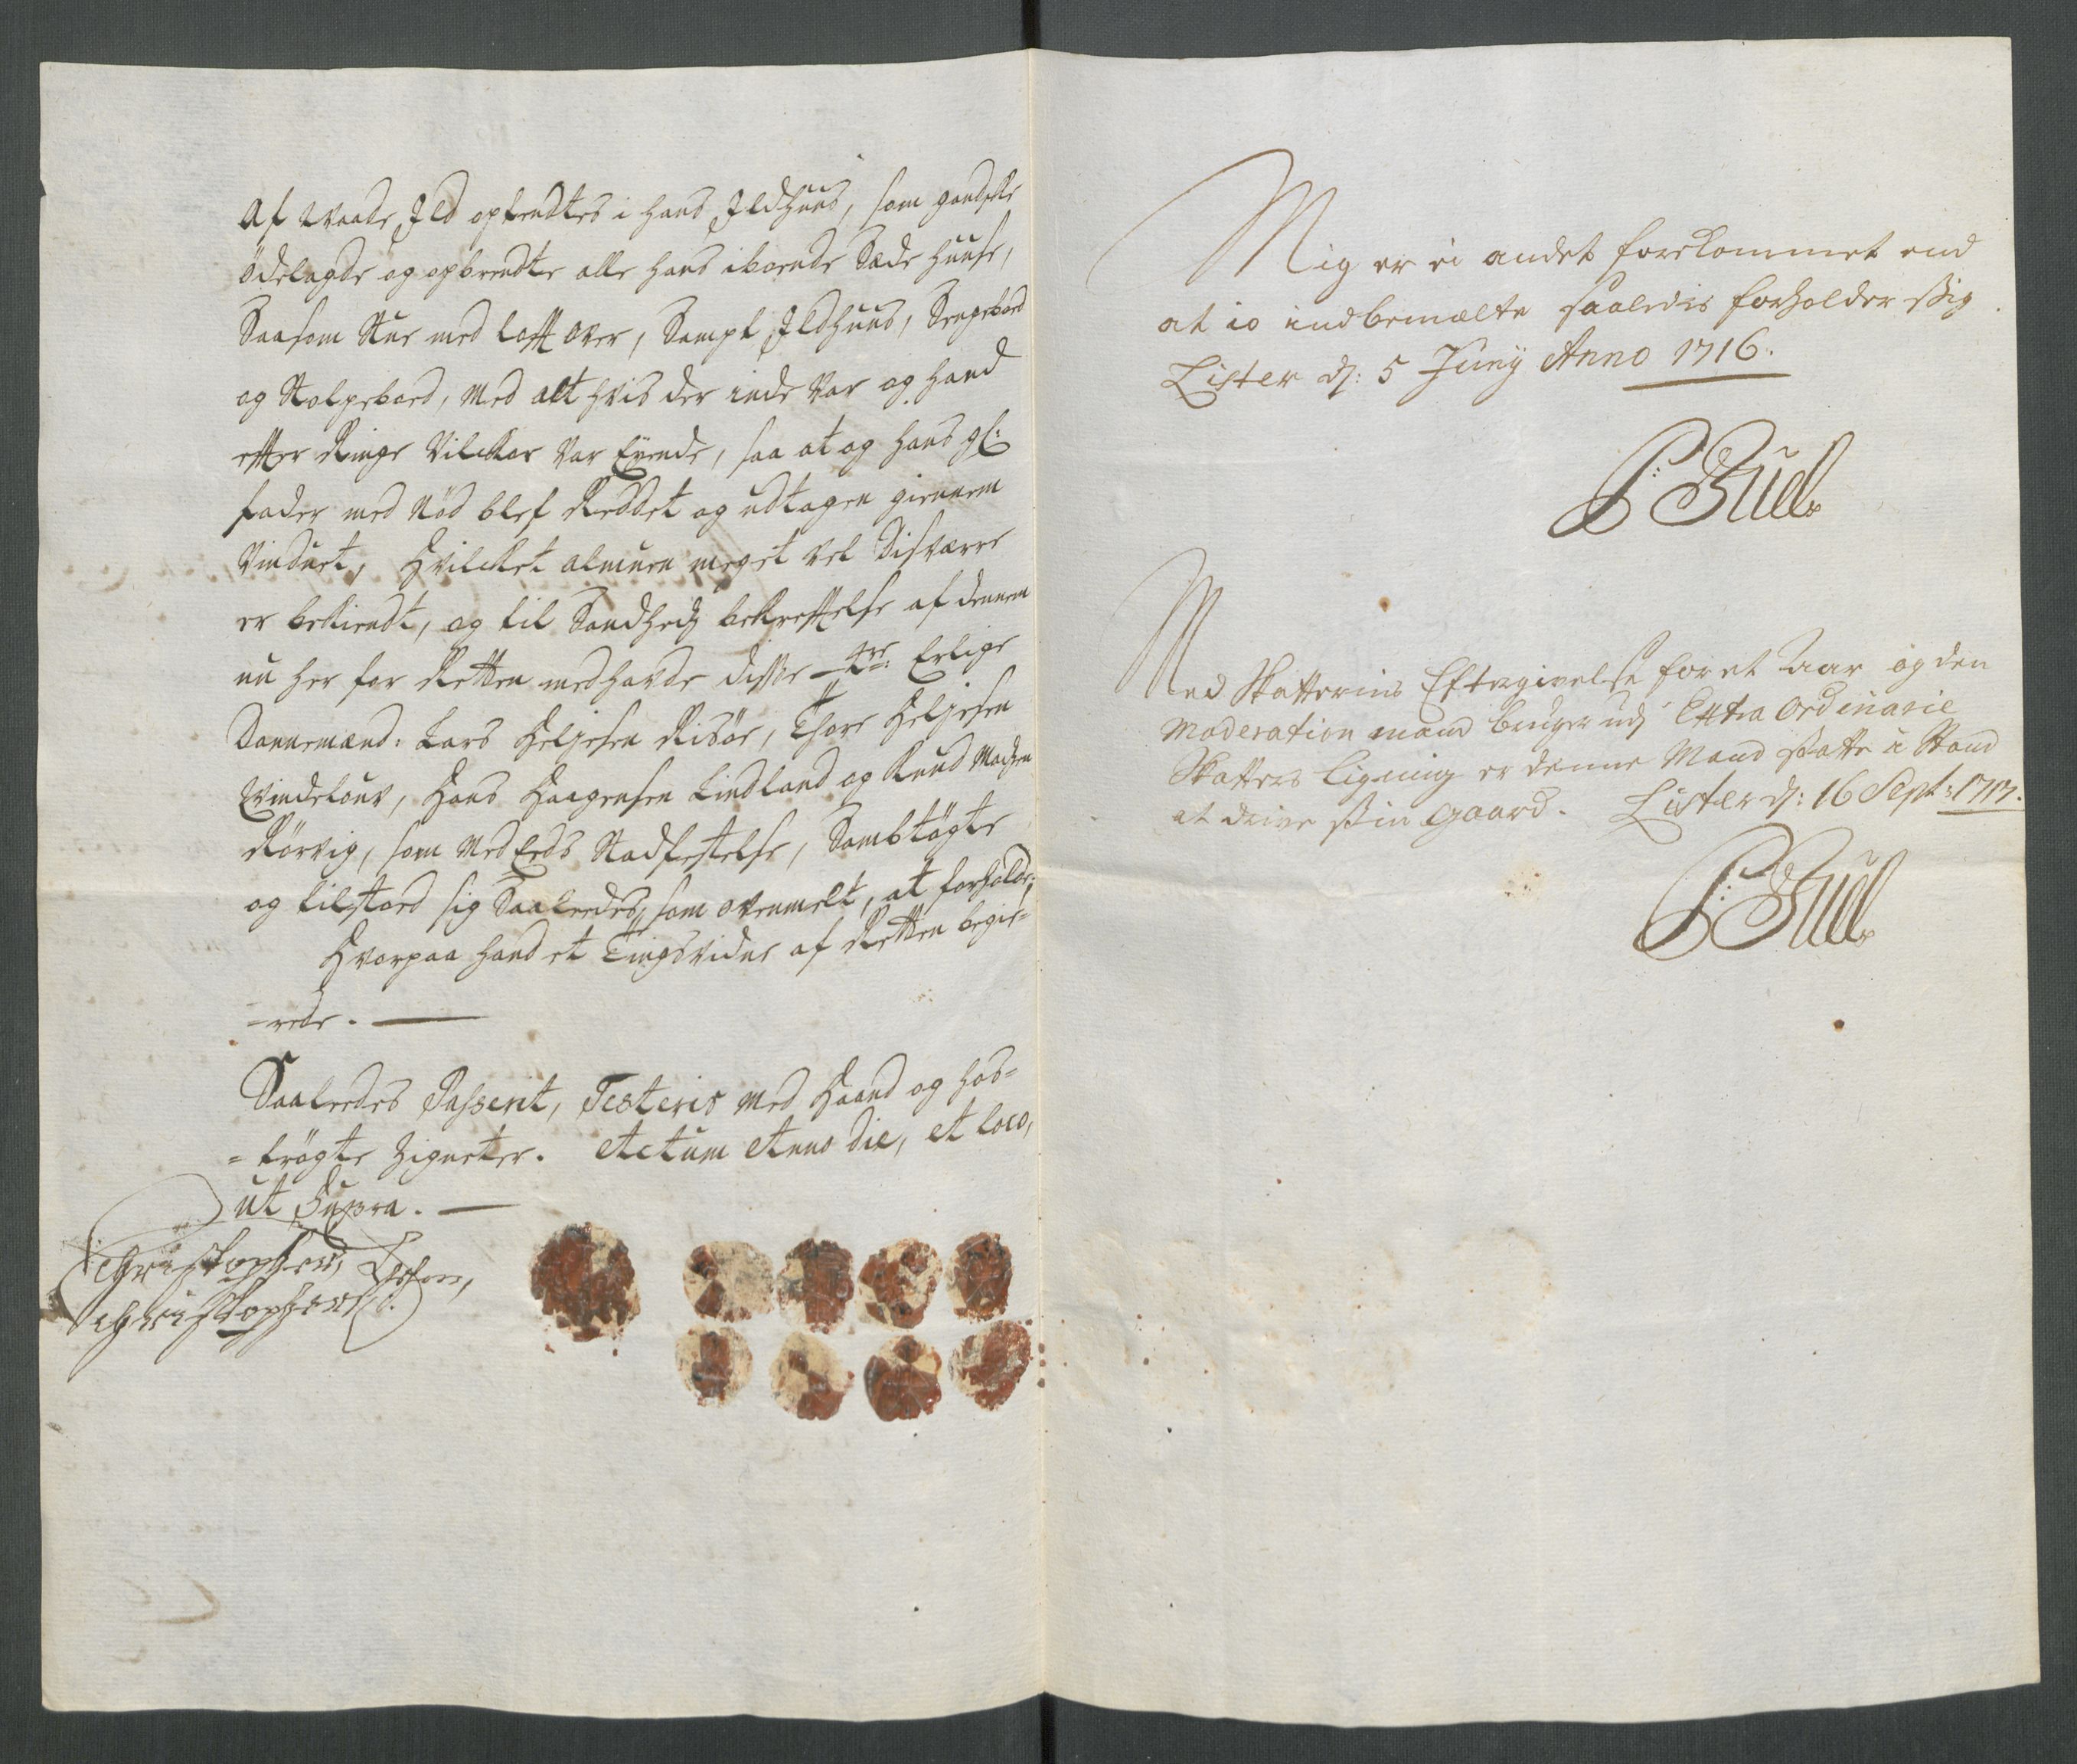 Af Waade Ild optendtes i hans Ildhuus, som gandske
ödelagde og opbrendte alle hans iboende Sæde huuse,
Saasom Stue med loft over, Sampt Ildhuus, Sengeboed
og Stolpeboed, Med alt hvis der inde var og hand
effter Ringe Vilckor var Eyende, saa at og hans gl:
fader med Nöd blef Reddet og udtagen giennem
Vinduet, Hvilcket almuen meget vel Disværre
er bekiendt, og til Sandheds bekrefftelse af dennem
nu her for Retten medhavde disse Erlige
Dannemænd: Lars Heljesen Risöe, Thore Heljesen
Hans Haagensen Lindland og Knud Madsen
Rörvig, som Med Eeds Stadfestelse, Samtögte
og tilstoed sig Saaleedes, som ovenmelt, at forholde;
Hvorpaa hand et Tingsvidne af Retten begie-
=rede.
Saaledes Passerit, Testeris med Haand og hos-
=trögte Zigneter. Actum Anno Die, et loco,
ut Supra.
Christopher
Christophersen
Mig er ei andet forekommet end
at io indbemælte saaledis forholder sig.
Lister d: 5 Juny Anno 1716.
P: Bue
Med Skatternis Eftergivelse for et Aar og den
Moderation mand bruger udj Extra Ordinarie
Skatters ligning er denne Mand satte i Stand
at drive sin Gaard. Lister d: 16 Sept: 1717.
P: Bue